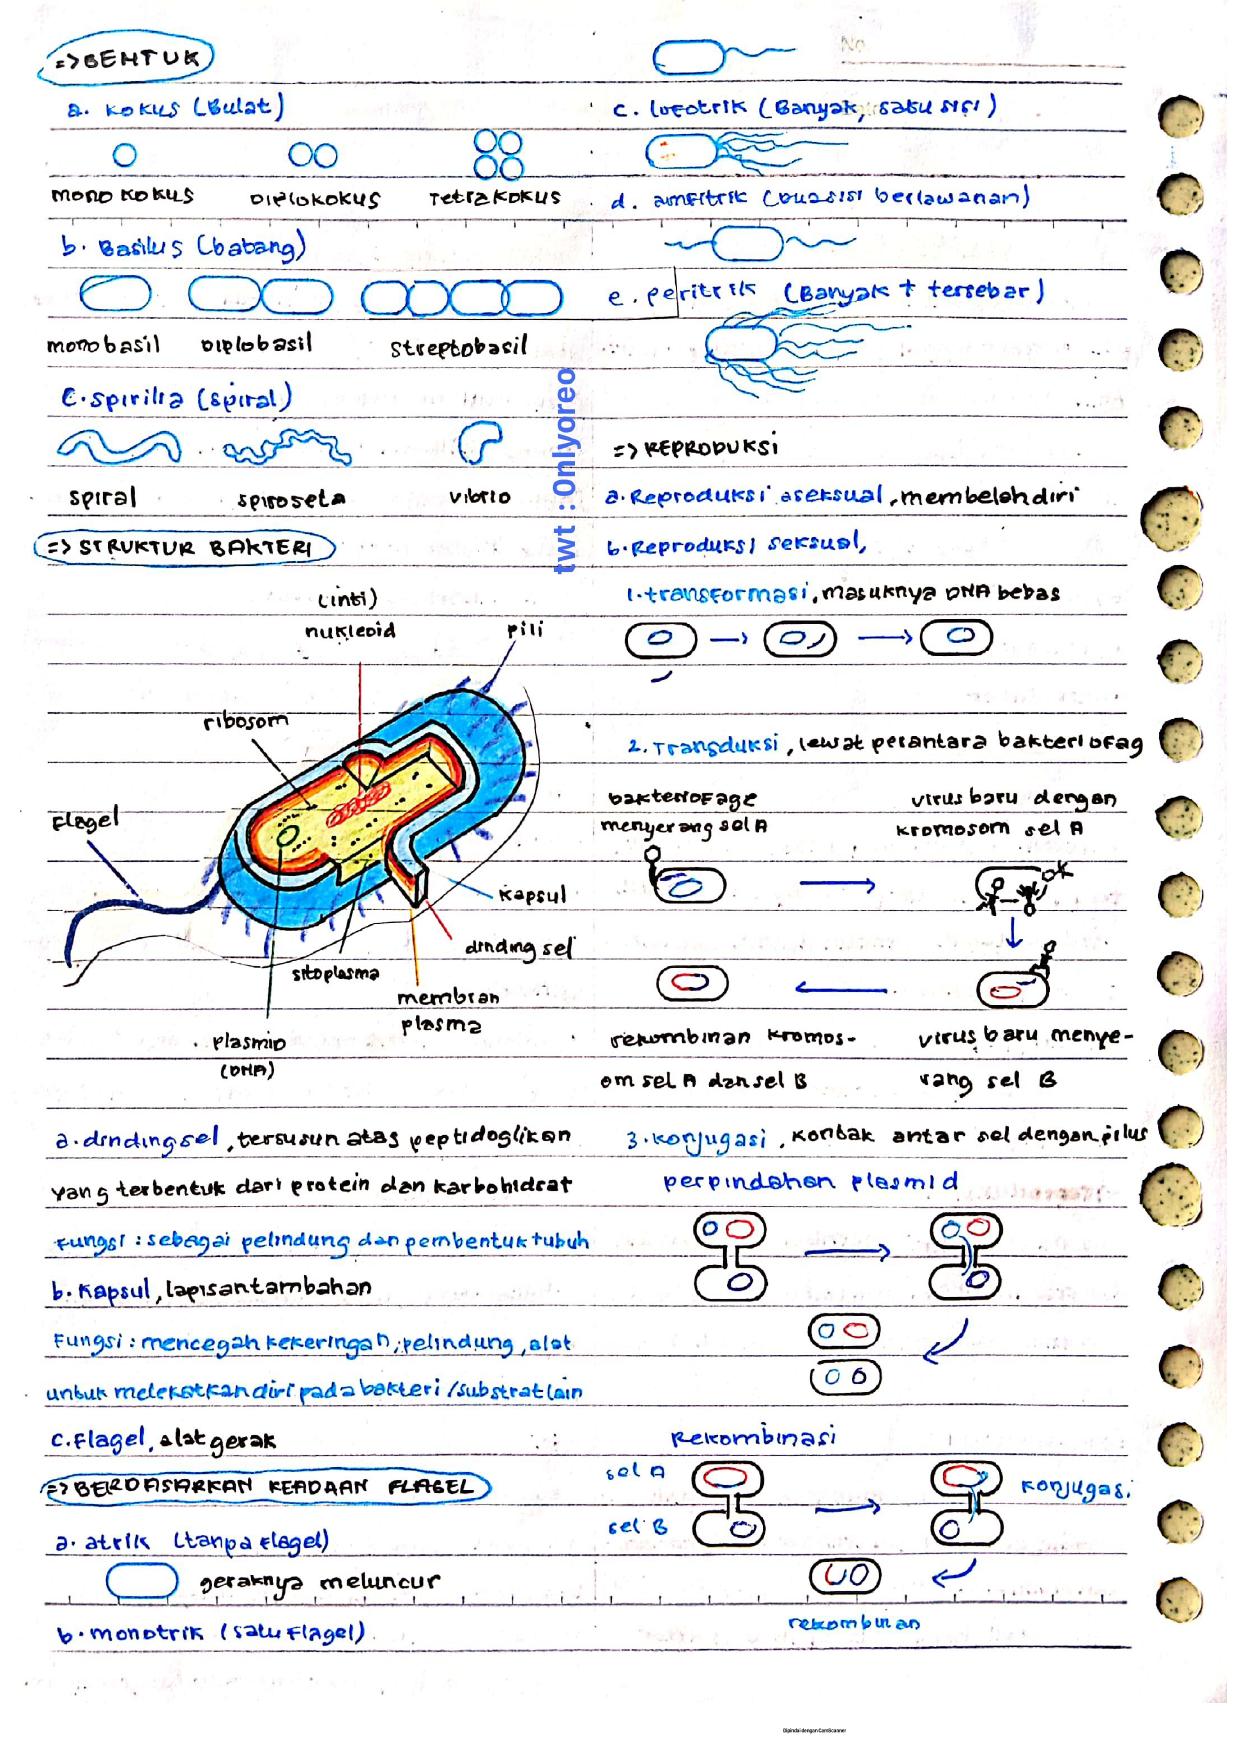 => BENTUK
a. Kokus (Bulat)
mono kokus
Diplokokus
Tetrakokus
b. Basilus (batang)
monobasil
Diplobasil
streptobasil
C. spirilia (spiral)
spiral
spiroseta
vibrio
=> STRUKTUR BAKTERI
(inti)
nukleoid
pili
ribosom
Flagel
Kapsul
dinding sel
sitoplasma
membran
plasma
plasmid
(DNA)
a. dinding sel, tersusun atas peptidoglikan
yang terbentuk dari protein dan karbohidrat
Fungsi : sebagai pelindung dan pembentuk tubuh
b. Kapsul, lapisan tambahan
Fungsi : mencegah kekeringan, pelindung, alat
untuk melekatkan diri pada bakteri / substrat lain
c. Flagel, alat gerak
=> BERDASARKAN KEADAAN FLAGEL
a. atrik (tanpa Flagel)
geraknya meluncur
b. monotrik (satu Flagel)
No
c. lofotrik (Banyak, satu sisi)
d. amfitrik (Dua sisi berlawanan)
e. peritrik (Banyak + tersebar)
twt : Onlyoreo
=> REPRODUKSI
a. Reproduksi aseksual, membelah diri
b. Reproduksi seksual,
1. transformasi, masuknya DNA bebas
2. Transduksi, lewat perantara bakteriofag
bakteriofage
menyerang sel A
virus baru dengan
kromosom sel A
rekombinan kromos-
om sel A dan sel B
virus baru menye-
rang sel B
3. konjugasi, kontak antar sel dengan pilus
perpindahan plasmid
Rekombinasi
sel A
sel B
konjugasi
rekombinan
Dipindai dengan CamScanner